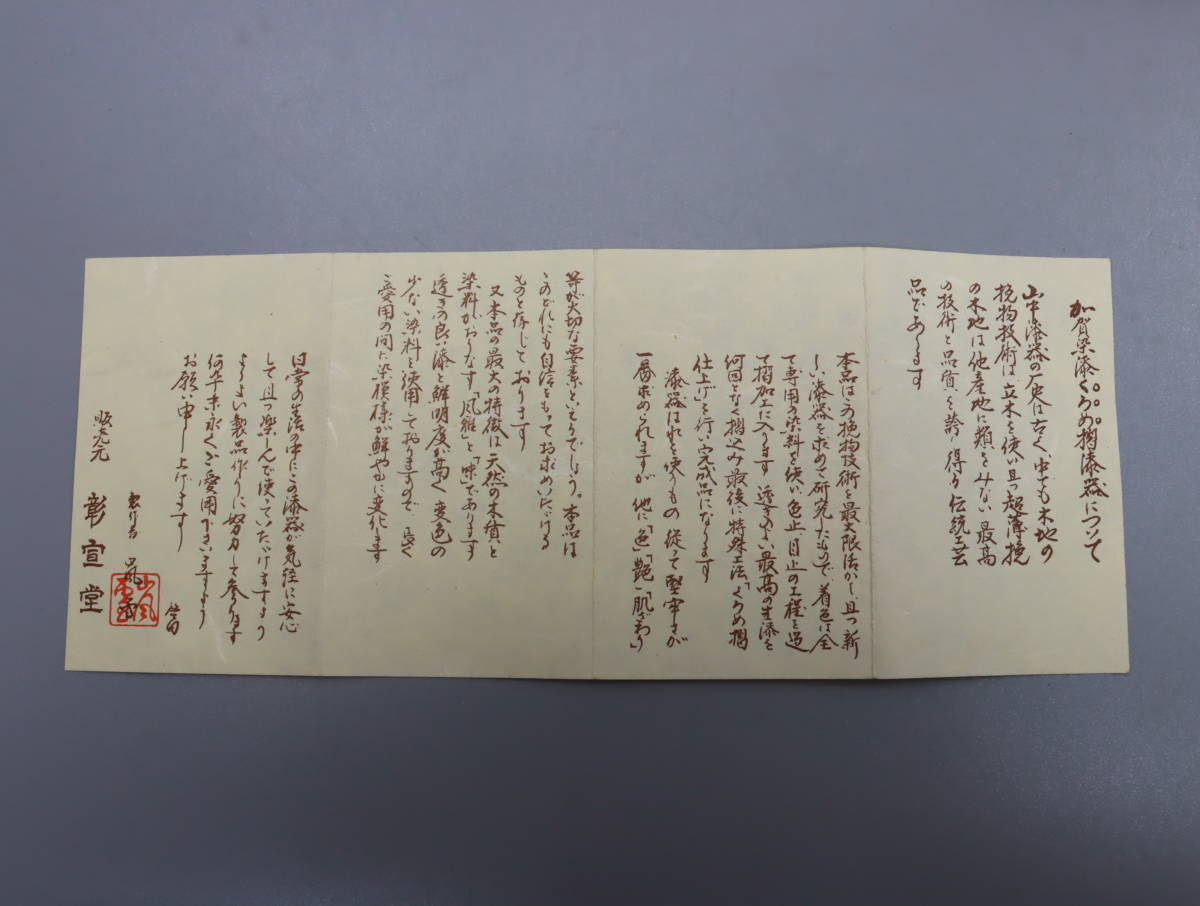 加賀染漆くろめ摺漆器について
山中漆器の歴史は古く中でも木地の
挽物技術は立木を使い且つ超薄挽
の木地は他産地に類をみない最高
の技術と品質を誇り得る伝統工芸
品であります
本品はこの挽物技術を最大限活かし、且つ新
しい漆器を求めて研究したもので、着色は全
て専用の染料を使い色止、目止の工程を過
て摺加工に入ります 透きのよい最高の生漆を
何回となく摺込み最後に特殊工法「くろめ摺
仕上げ」を行い完成品になります
漆器はそれを使うもの 従って堅牢さが
一番求められますが 他に「色」「艶」「肌ざわり」
等が大切な要素といえるでしょう。本品は
そのどれにも自信をもってお求めいただける
ものと存じております
又本品の最大の特徴は天然の木質と
染料がおりなす「風雅」と「味」であります
透きの良い漆と鮮明度が高く変色の
少ない染料を使用しておりますので、長く
ご愛用の間に染模様が鮮やかに変化します
日常の生活の中にこの漆器が気軽に安心
して且つ楽しんで使っていただけますよう
よりよい製品作りに努力して参ります
何卒末永くご愛用下さいますよう
お願い申し上げます
製作者
販売元 彰宣堂